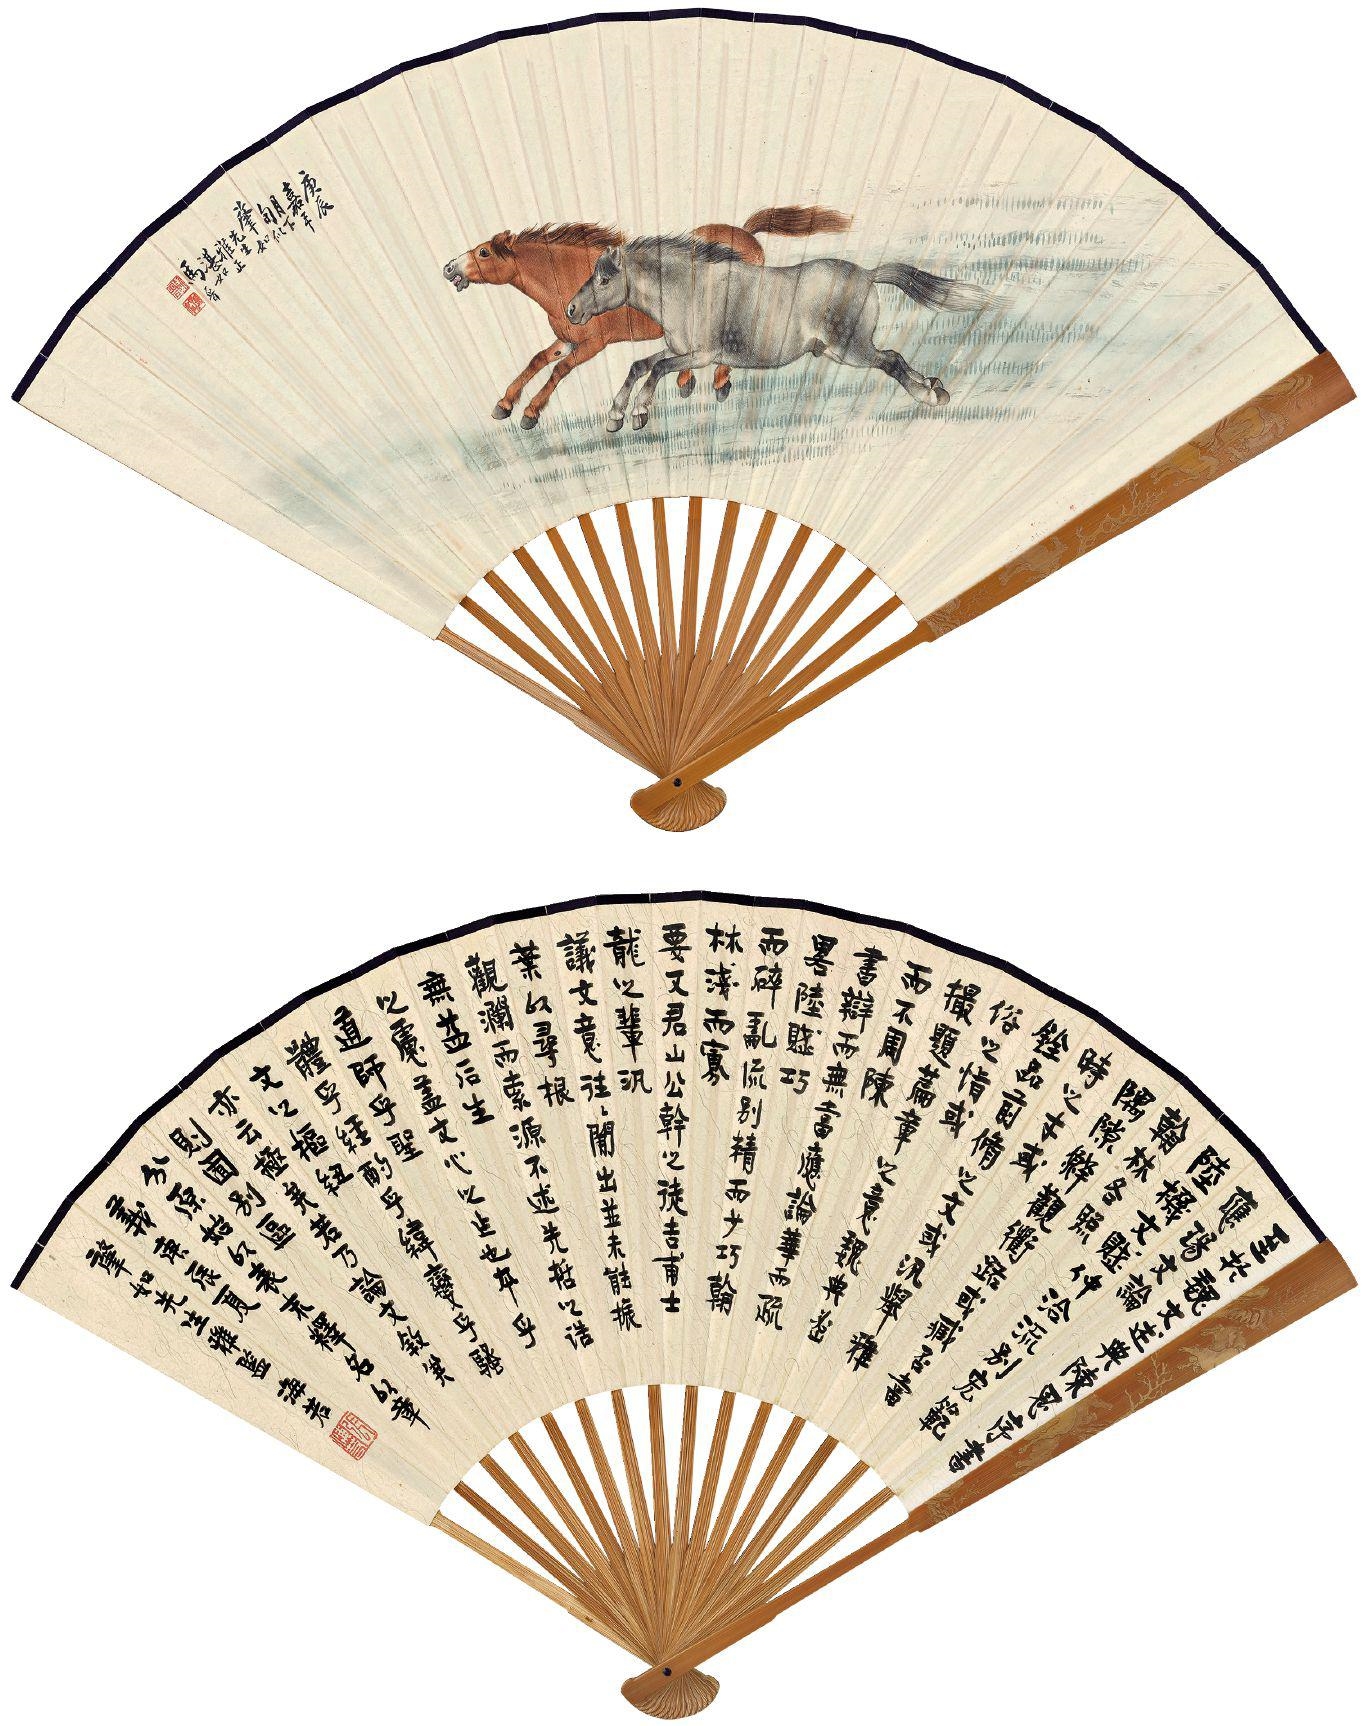 庚辰年
嘉平
月下
旬似
肇如
先生
雅正
湛如
馬晉
至於魏文述典陳思序書
應瑒文論
陸機文賦仲洽流別宏範
翰林各照
隅隙鮮觀衢路或臧否當
時之才或
銓品前脩之文或汎舉雅
俗之情或
撮題篇章之意魏典密
而不周陳
書辯而無當應論華而疏
畧陸賦巧
而碎亂流別精而少巧翰
林淺而寡
要又君山公幹之徒吉甫士
龍之輩汎
議文意往〻間出並未能振
葉以尋根
觀瀾而索源不述先哲之誥
無益后生
之慮蓋文心之作也本乎
道師乎聖
體乎經酌乎緯變乎騷
文之樞紐
亦云極矣若乃論文敘筆
則囿別區
分原始以表末釋名以章
義庚辰夏
肇如先生雅鑒 海若